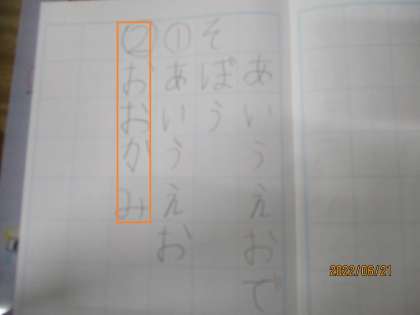 あいうえおで
そぼう
①あいうえお
②おおかみ
2022/06/21